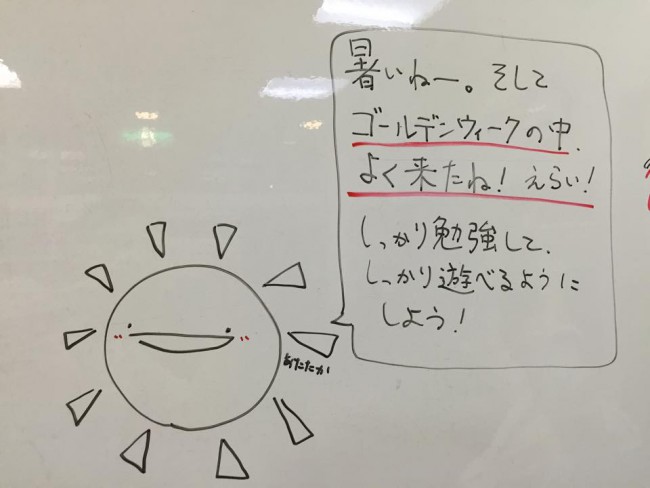 暑いねー。そして
ゴールデンウィークの中、
よく来たね！えらい！
しっかり勉強して、
しっかり遊べるように
しよう！